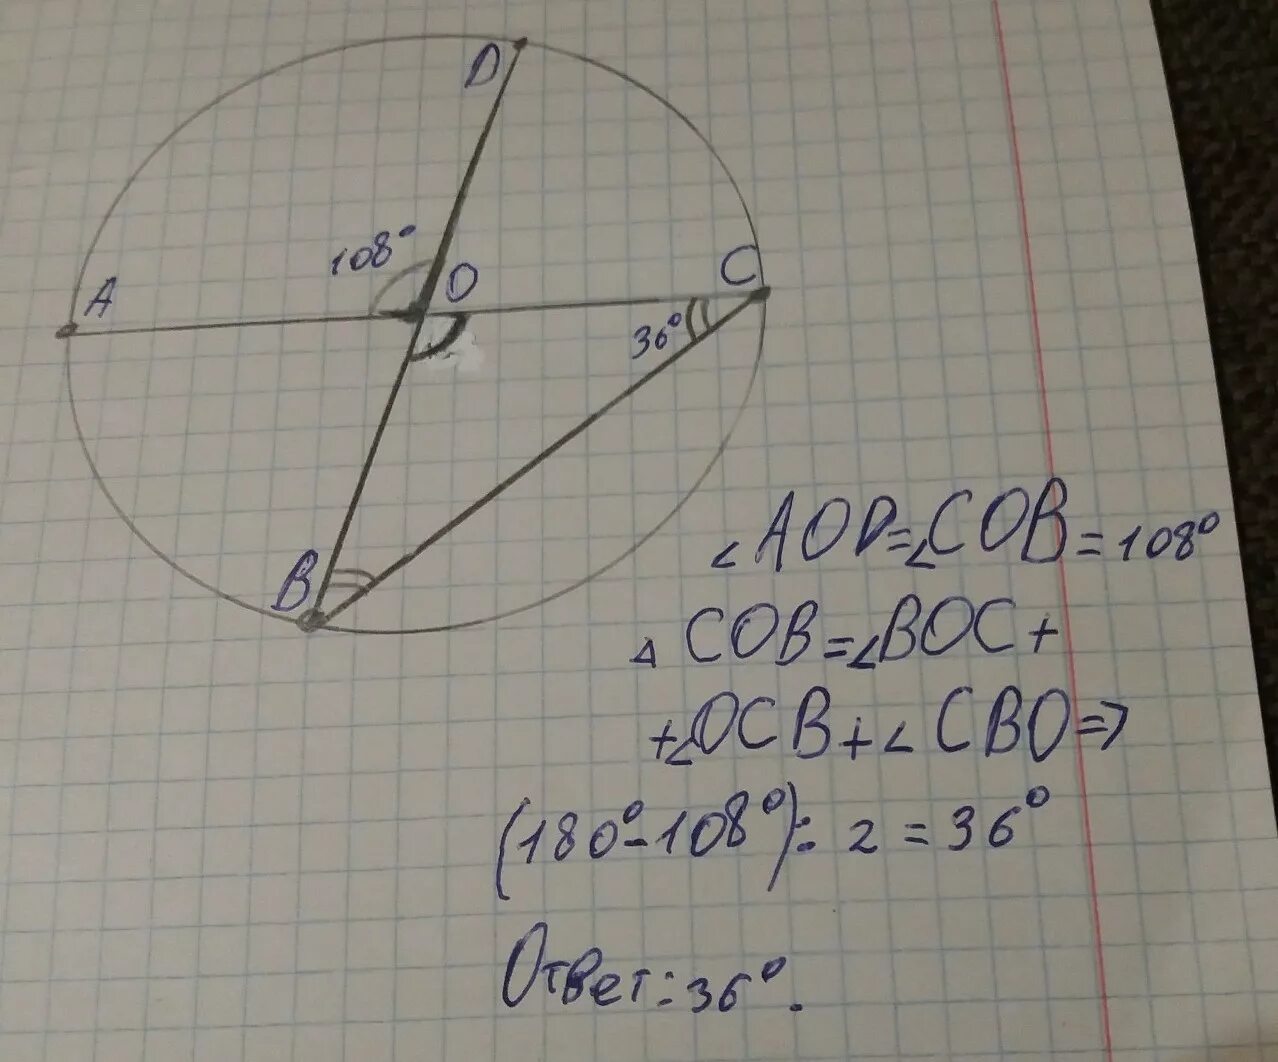 D
A
108°
O
C
36°
B
∠AOD=∠COB=108°
△ COB=∠BOC+
+∠OCB+∠CBO=>
(180°-108°): 2 = 36°
Ответ: 36°.